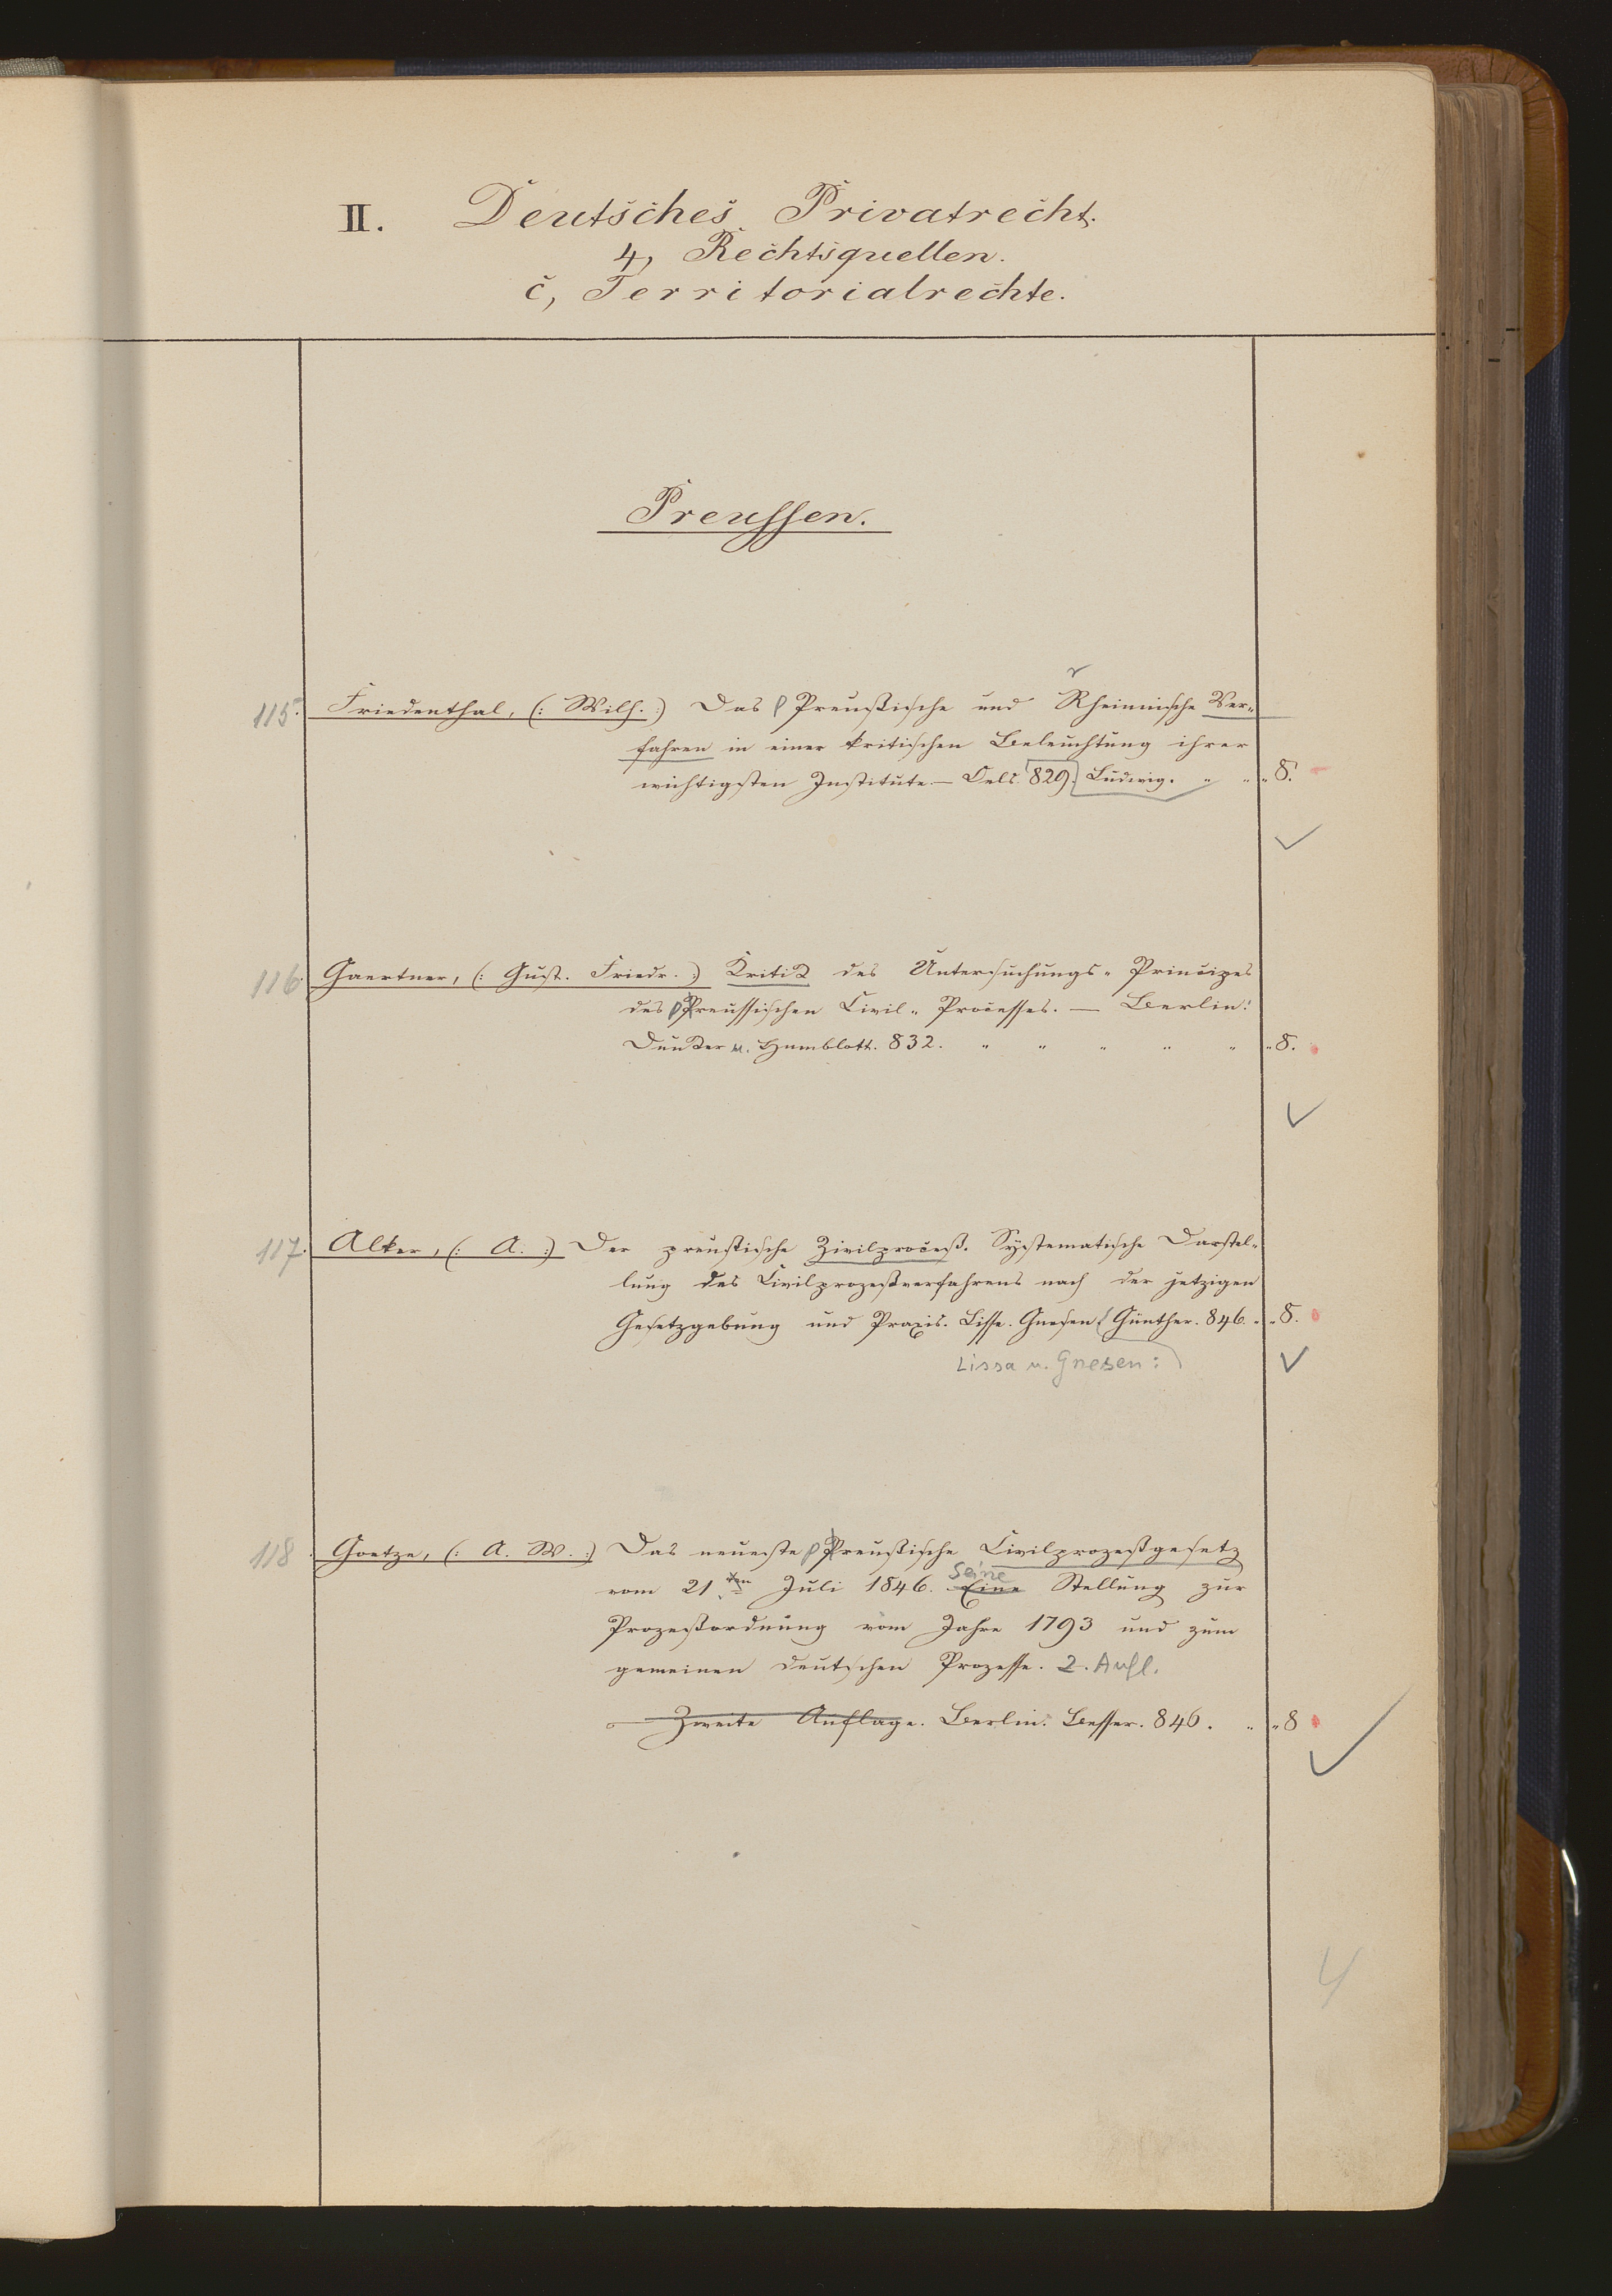 II. Deutsches Privatrecht.
4, Rechtsquellen.
c, Territorialrechte.
Preussen.
r
115. Friedenthal, (: Wilh. :) Das p Preußische und Rheinische Ver-
fahren in einer kritischen Beleuchtung ihrer
wichtigsten Institute. — Oels. 829. Ludwig. " " " 8.
116. Gaertner, (: Gust. Friedr. :) Kritik des Untersuchungs- Principes
des p Preussischen Civil- Processes. — Berlin:
Dunker u. Humblott. 832. " " " " " " 8.
117. Alker, (: A. :) Der preußische Zivilproceß. Systematische Darstel-
lung des Civilprozeßverfahrens nach der jetzigen
Gesetzgebung und Praxis. Lissa. Gnesen Günther. 846. " " 8.
Lissa u. Gnesen:
118. Goetze, (: A. W. :) Das neueste p Preußische Civilprozeßgesetz
Seine
vom 21ten Juli 1846. Eine Stellung zur
Prozeßordnung vom Jahre 1793 und zum
gemeinen deutschen Prozesse. 2. Aufl.
Zweite Auflage. Berlin: Besser. 846. " " 8
4